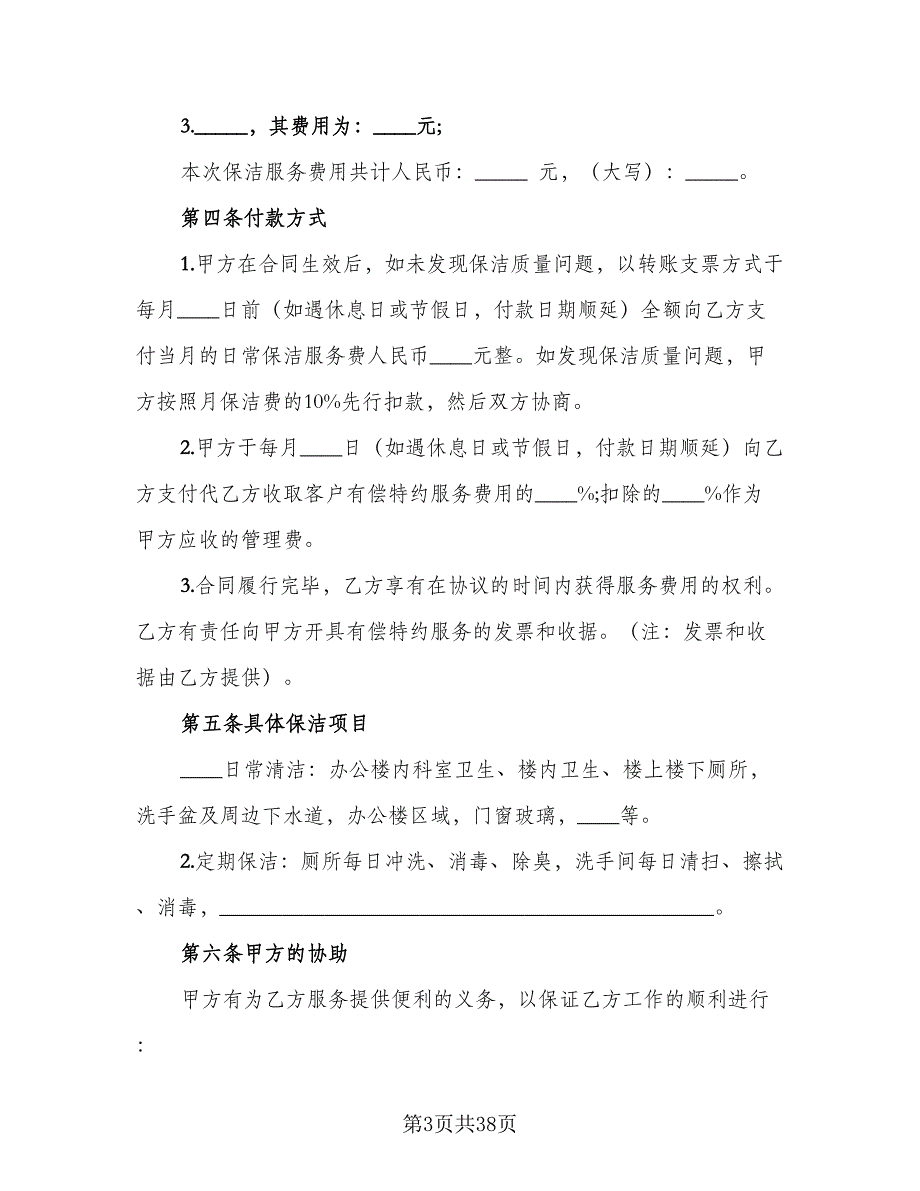 3._____，其费用为：____元;
本次保洁服务费用共计人民币：_____ 元，（大写）：_____。
第四条付款方式
1.甲方在合同生效后，如未发现保洁质量问题，以转账支票方式于
每月____日前（如遇休息日或节假日，付款日期顺延）全额向乙方支
付当月的日常保洁服务费人民币____元整。如发现保洁质量问题，甲
方按照月保洁费的10%先行扣款，然后双方协商。
2.甲方于每月____日（如遇休息日或节假日，付款日期顺延）向乙
方支付代乙方收取客户有偿特约服务费用的____%;扣除的____%作为
甲方应收的管理费。
3.合同履行完毕，乙方享有在协议的时间内获得服务费用的权利。
乙方有责任向甲方开具有偿特约服务的发票和收据。（注：发票和收
据由乙方提供）。
第五条具体保洁项目
____日常清洁：办公楼内科室卫生、楼内卫生、楼上楼下厕所，
洗手盆及周边下水道，办公楼区域，门窗玻璃，____等。
2.定期保洁：厕所每日冲洗、消毒、除臭，洗手间每日清扫、擦拭
、消毒，_______________________________________________。
第六条甲方的协助
甲方有为乙方服务提供便利的义务，以保证乙方工作的顺利进行
：
第3页共38页